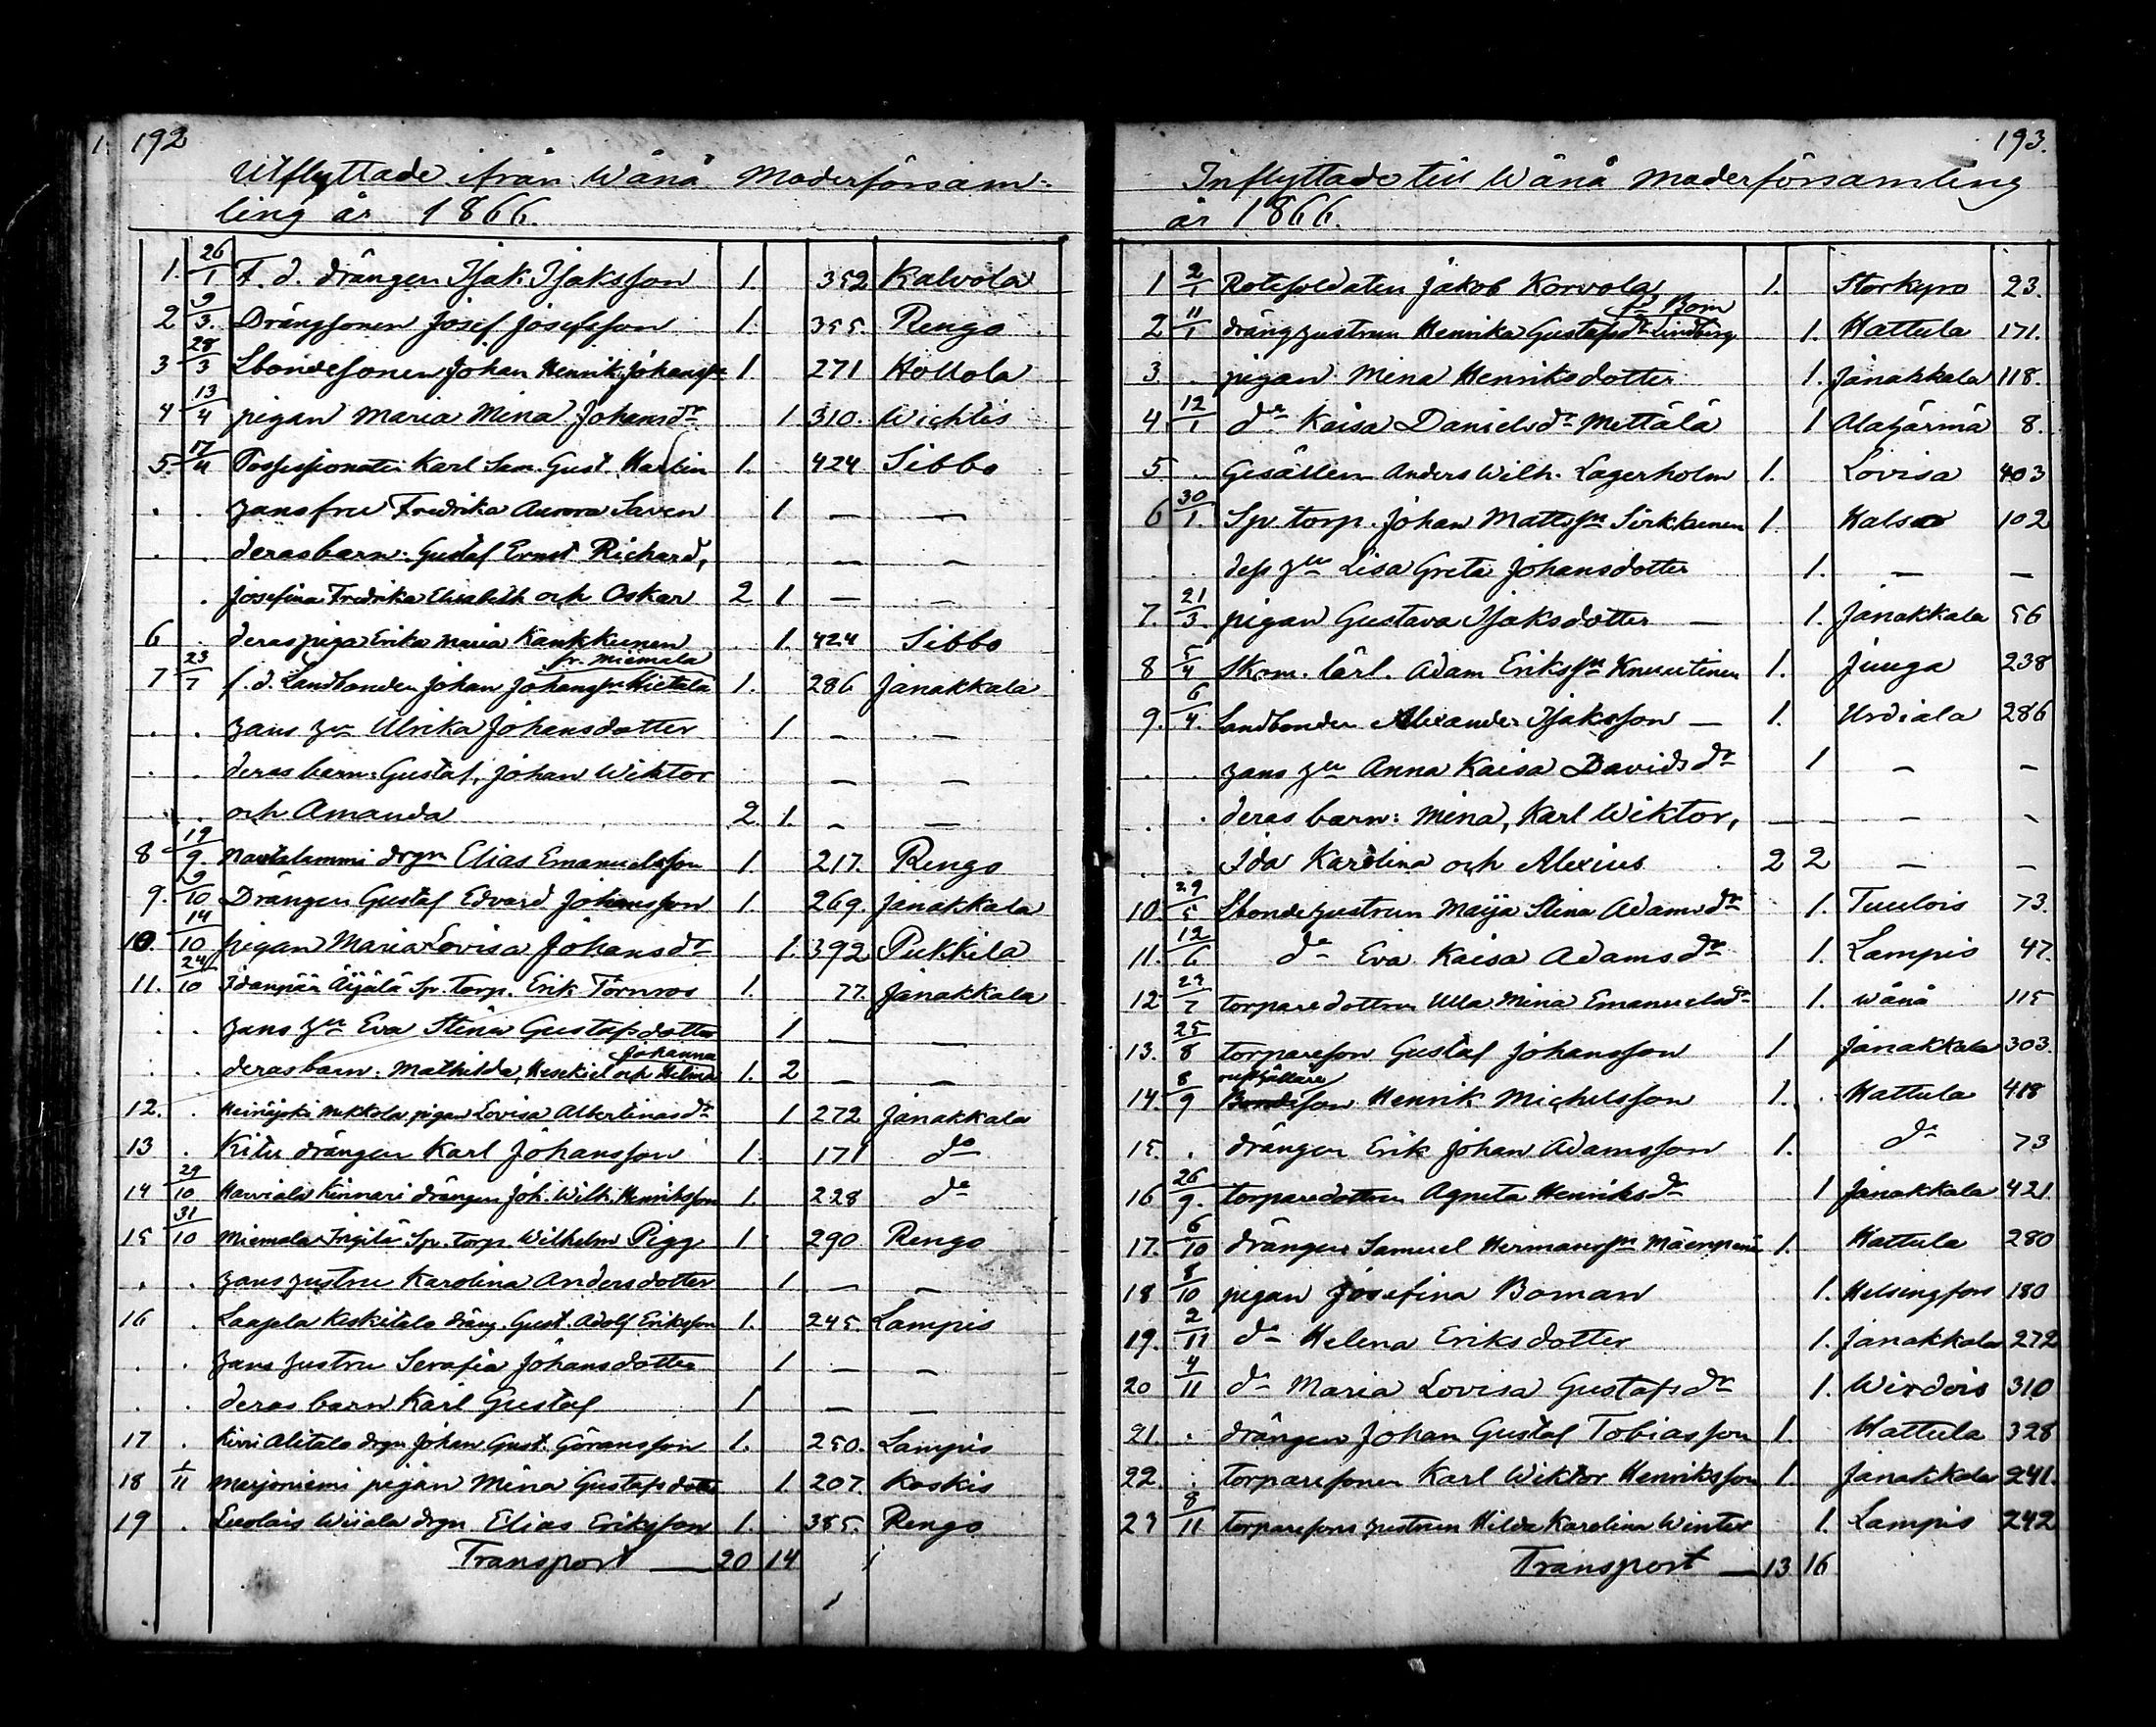 192
Utflyttade ifrån Wånå Moderförsam-
ling år 1866.
1. 26/1 F. d. drängen Isak Isaksson 1. 352 Kalvola
2 9/3. Drängsonen Josef Josefsson 1. 355. Rengo
3 28/3 Lbondesonen Johan Henrik Johanss:n 1. 271 Hollola
4 13/4 pigan Maria Mina Johansdr 1 310. Wichtis
5. 17/4 Possessionaten Karl Sam. Gust. Harlin 1. 424 Sibbo
. . hans fru Fredrika Aurora Saven 1 — —
. . deras barn: Gustaf Ernst Richard, — —
. Josefina Fredrika Elisabeth och Oskar 2 1 — —
6 . deras piga Erika Maria Kankkunen 1. 424 Sibbo
fr. Miemala
7 23/7 f. d. Landbonden Johan Johanss:n Hietala 1. 286 Janakkala
. . hans hu Ulrika Johansdotter 1 — —
. . deras barn: Gustaf, Johan Wiktor — —
. . och Amanda 2. 1. — —
8 19/9. drgn Elias Emanuelsson 1. 217. Rengo
9. 9/10 Drängen Gustaf Edvard Johansson 1. 269. Janakkala
10. 14/10 pigan Maria Lovisa Johansdr 1. 392 Pukkila
11. 24/10 Idanpää Äijälä Sp. torp. Erik Törnroos 1. 77. Janakkala
. . hans hu Eva Stina Gustafsdotter 1 — —
Johanna
. . deras barn: Mathilda, Hesekiel och Helina 1. 2 — —
12. . Heinäjoki Mekkola pigan Lovisa Albertinasdr 1 272 Janakkala
13 . Kitu drängen Karl Johansson 1. 171 do
14 29/10 Harviala Kinnari drängen Joh. Wilh. Henriksson 1. 228 do
15 31/10 Miemala Ingilä Sp. torp. Wilhelm Pigg 1. 290 Rengo
. . hans hustru Karolina Andersdotter 1 — —
16 . Laapla Keskitalo dräng. Gust. Adolf Eriksson 1. 245. Lampis
. . hans hustru Serafia Johansdotter 1 — —
. . deras barn Karl Gustaf 1 — —
17 . Kirri Alitalo drgn Johan Gust. Göransson 1. 250. Lampis
18 1/11 Merjoniemi pigan Mina Gustafsdotter 1. 207. Koskis
19 . Luolais Wiiala drgn Elias Eriksson 1. 385. Rengo
Transport — 20 14
193.
Inflyttade till Wånå Moderförsamling
år 1866.
1 2/1 Rotesoldaten Jakob Korvola 1. Storkyro 23.
fd Bom
2 11/1 dränghustrun Henrika Gustafsdr Lindberg 1. Hattula 171.
3 . pigan Mina Henriksdotter 1. Janakkala 118.
4 12/1 do Kaisa Danielsdr Mettälä 1 Alahärmä 8.
5 . Gesällen Anders Wilh. Lagerholm 1. Lovisa 403
6 30/1. Sp. torp. Johan Mattss:n Sirkkunen 1. Halsoo 102
. . dess hu Lisa Greta Johansdotter 1. — —
7. 21/3. pigan Gustava Isaksdotter — 1. Janakkala 56
8 5/4 Skom. lärl. Adam Erikss:n Knuutinen 1. Juuga 238
9. 6/4. Landbonden Alexander Isaksson — 1. Urdiala 286
. . hans hu Anna Kaisa Davidsdr 1 — —
. . deras barn: Mina, Karl Wiktor, — — — —
. . Ida Karolina och Alexius 2 2 — —
10 29/5 Lbondehustrun Maija Stina Adamsdr 1. Tuulois 73.
11. 12/6 do Eva Kaisa Adamsdr 1. Lampis 47.
12 23/7 torparedottren Ulla Mina Emanuelsdr 1. Wånå 115
13. 25/8 torpareson Gustaf Johansson 1 Janakkala 303.
14. 8/9 son Henrik Michelsson 1. Hattula 418
15. . drängen Erik Johan Adamsson 1. do 73
16 26/9. torparedottren Agneta Henriksdr 1 Janakkala 421.
17. 6/10 drängen Samuel Hermanss:n Mäenpää 1. Hattula 280
18 8/10 pigan Josefina Boman 1. Helsingfors 180
19. 2/11 do Helena Eriksdotter 1. Janakkala 272
20 4/11 do Maria Lovisa Gustafsdr 1. Wirdois 310
21. . drängen Johan Gustaf Tobiasson 1. Hattula 328
22. . torparesonen Karl Wiktor Henriksson 1. Janakkala 241.
23 8/11 torparesons hustrun Hilda Karolina Winter 1. Lampis 242
Transport — 13 16